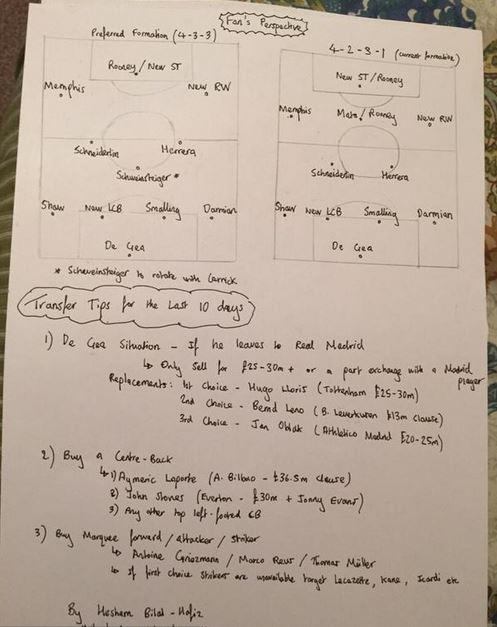 Fan's Perspective
Preferred Formation (4-3-3)
Rooney / New ST
Memphis
New RW
Schneiderlin
Herrera
Schweinsteiger *
Shaw
New LCB
Smalling
Darmian
De Gea
* Schweinsteiger to rotate with Carrick
4-2-3-1 (current formation)
New ST/Rooney
Memphis
Mata/Rooney
New RW
Schneiderlin
Herrera
Shaw
New LCB
Smalling
Darmian
De Gea
Transfer Tips for the Last 10 days
1) De Gea Situation - If he leaves to Real Madrid
↳ Only sell for £25-30m + or a part exchange with a Madrid
player
Replacements: 1st Choice - Hugo Lloris (Tottenham £25-30m)
2nd Choice - Bernd Leno (B. Leverkusen £13m clause)
3rd Choice - Jan Oblak (Athletico Madrid £20-25m)
2) Buy a Centre-Back
↳ 1) Aymeric Laporte (A. Bilbao - £36.5m clause)
2) John Stones (Everton - £30m + Jonny Evans)
3) Any other top left-footed CB
3) Buy Marquee forward / attacker / striker
↳ Antoine Griezmann / Marco Reus / Thomas Müller
↳ If first choice strikers are unavailable target Lacazette, Kane, Icardi etc
By Hesham Bilal-Hafiz